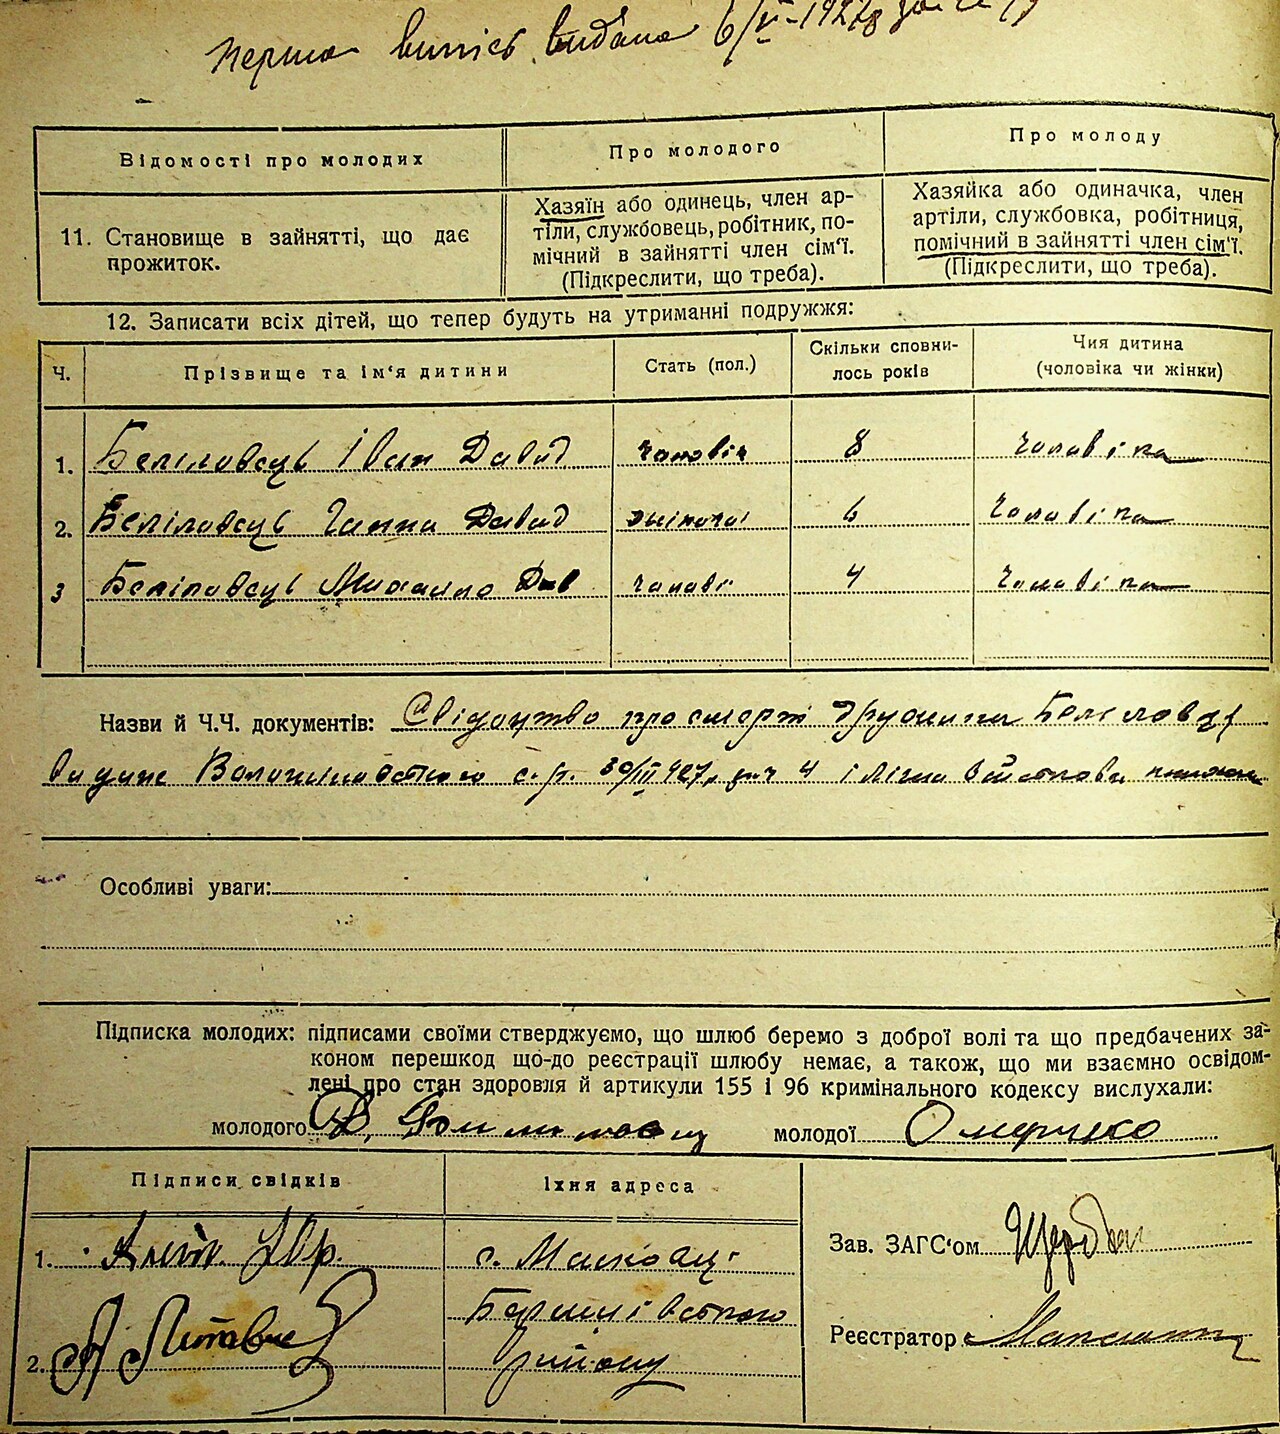 Перша випись видана 6/VI-1927р
Відомості про молодих
Про молодого
Про молоду
11. Становище в зайнятті, що дає
прожиток.
Хазяїн або одинець, член ар-
тіли, службовець, робітник, по-
мічний в зайнятті член сім'ї.
(Підкреслити, що треба).
Хазяйка або одиначка, член
артіли, службовка, робітниця,
помічний в зайнятті член сім'ї.
(Підкреслити, що треба).
12. Записати всіх дітей, що тепер будуть на утриманні подружжя:
Ч.
Прізвище та ім'я дитини
Стать (пол.)
Скільки сповни-
лось років
Чия дитина
(чоловіка чи жінки)
1. Беліловець Іван Давид чоловіч 8 чоловіка
2. Беліловець Ганна Давид жіноча 6 чоловіка
3 Беліловець Михайло Дав чоловіч 4 чоловіка
Назви й Ч.Ч. документів: Свідоцтво про смерть
видане с.р. 30/III 927р. 4 і
Особливі уваги:
Підписка молодих: підписами своїми стверджуємо, що шлюб беремо з доброї волі та що предбачених за-
коном перешкод що-до реєстрації шлюбу немає, а також, що ми взаємно освідом-
лені про стан здоровля й артикули 155 і 96 кримінального кодексу вислухали:
молодого Д. молодої
Підписи свідків
Їхня адреса
1. с. Маськовці
Бердичівського
2. району
Зав. ЗАГС'ом Щерб
Реєстратор